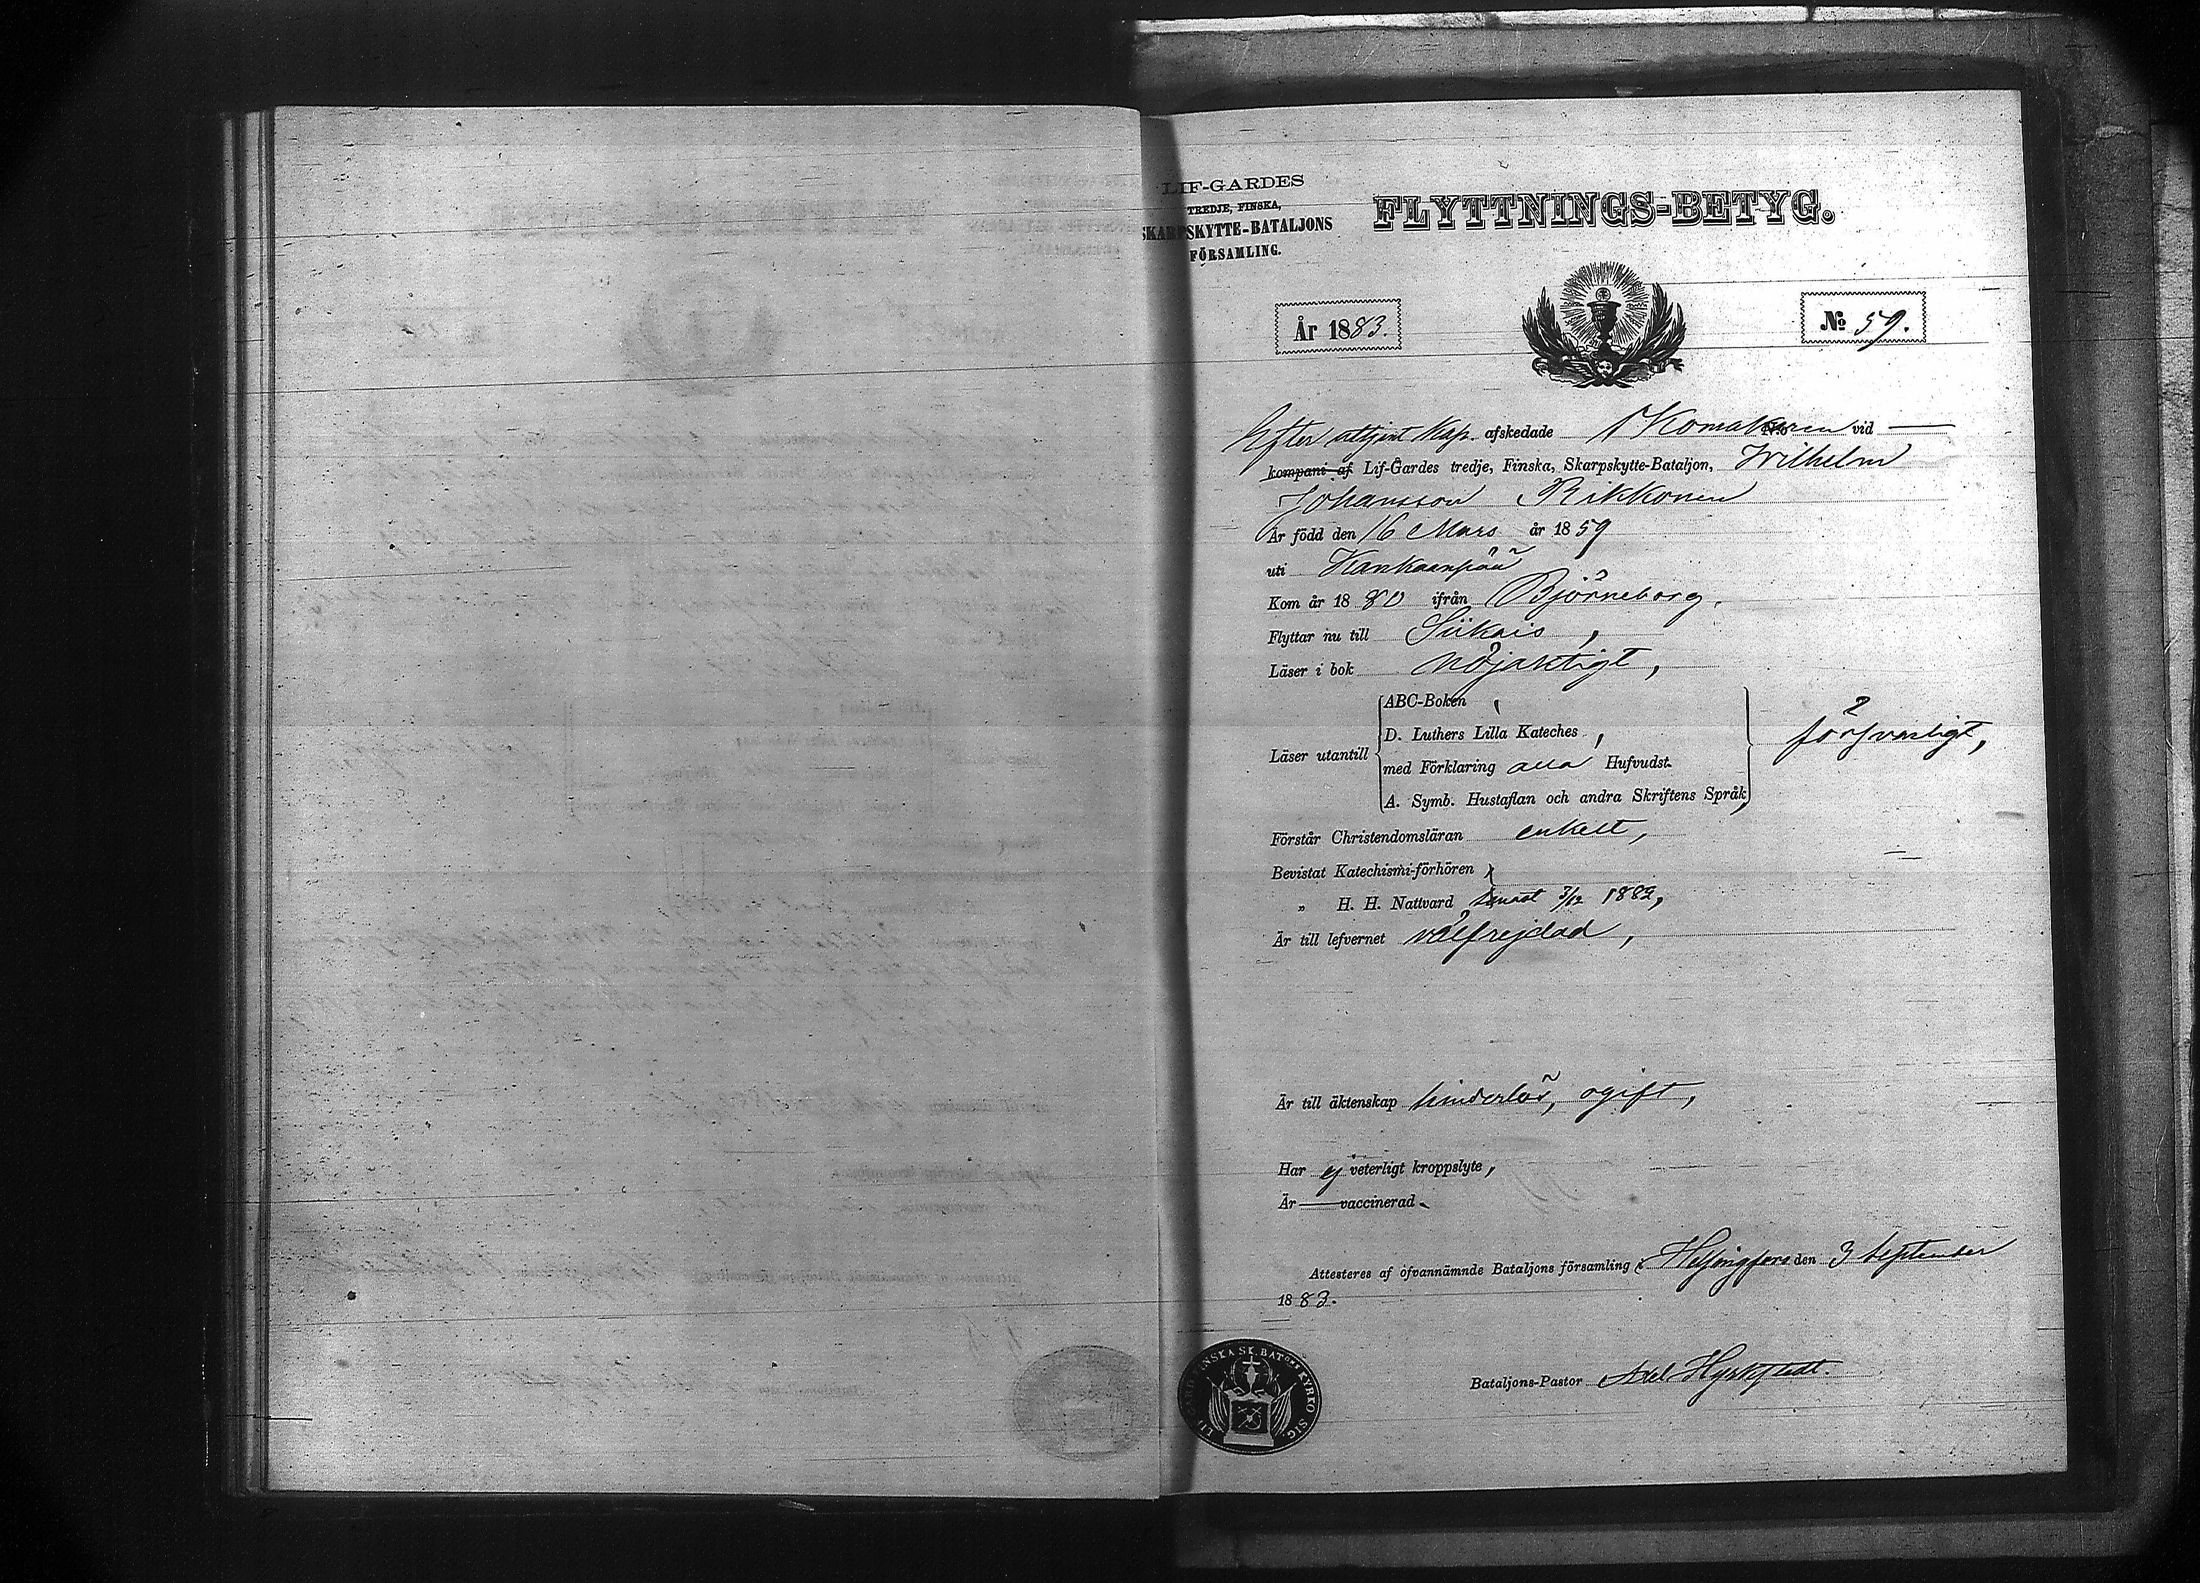 LIF-GARDES
TREDJE, FINSKA,
SKARPSKYTTE-BATALJONS
FÖRSAMLING.
FLYTTNINGS-BETYG.
År 1883.
№ 59.
Efter uttjent Kap. afskedade Skomakaren vid
kompani af Lif-Gardes tredje, Finska, Skarpskytte-Bataljon, Wilhelm
Johansson Rikkonen
Är född den 16 Mars år 1859
uti Kankaanpää
Kom år 1880 ifrån Björneborg.
Flyttar nu till Siikais,
Läser i bok nöjaktigt,
Läser utantill
ABC-Boken,
D. Luthers Lilla Kateches,
med Förklaring alla Hufvudst.
A. Symb. Hustaflan och andra Skriftens Språk,
försvarligt,
Förstår Christendomsläran enkelt,
Bevistat Katechismi-förhören,
„ H. H. Nattvard senast 3/12 1882,
Är till lefvernet välfrejdad,
Är till äktenskap hinderlös, ogift,
Har ej veterligt kroppslyte,
Är vaccinerad.
Attesteras af ofvannämnde Bataljons församling i Helsingfors den 3 September
1883.
Bataljons-Pastor Axel Hyrkstedt.
FINSKA SK. BATONS KYRKO SIG.